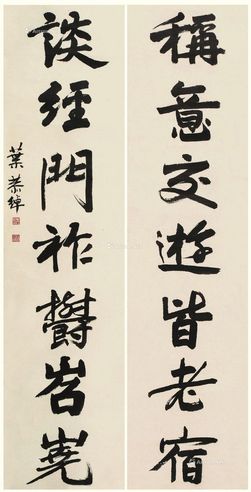 稱意交遊皆老宿
談經門祚鬱岧嶤
葉恭綽